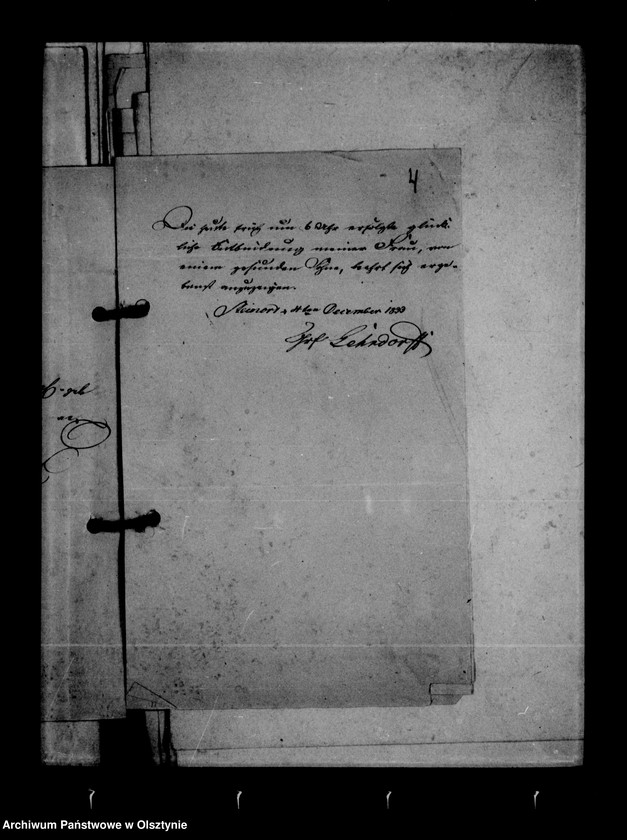 4
Die heute früh um 6 Uhr erfolgte glück-
liche Entbindung meiner Frau, von
einem gesunden Sohne, beehrt sich erge-
benst anzuzeigen.
Steinort, 4ten December 1833
Graf Lehndorff
Archiwum Państwowe w Olsztynie